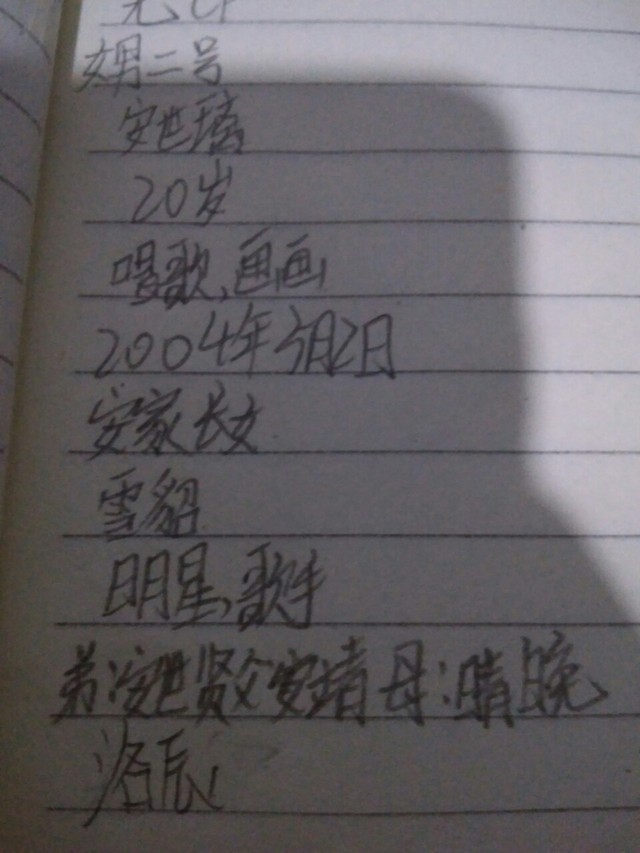 无CP
女男二号
安世璃
20岁
唱歌、画画
2004年3月2日
安家长女
雪貂
明星、歌手
弟:安世贤父安靖母:晴晚
洛辰